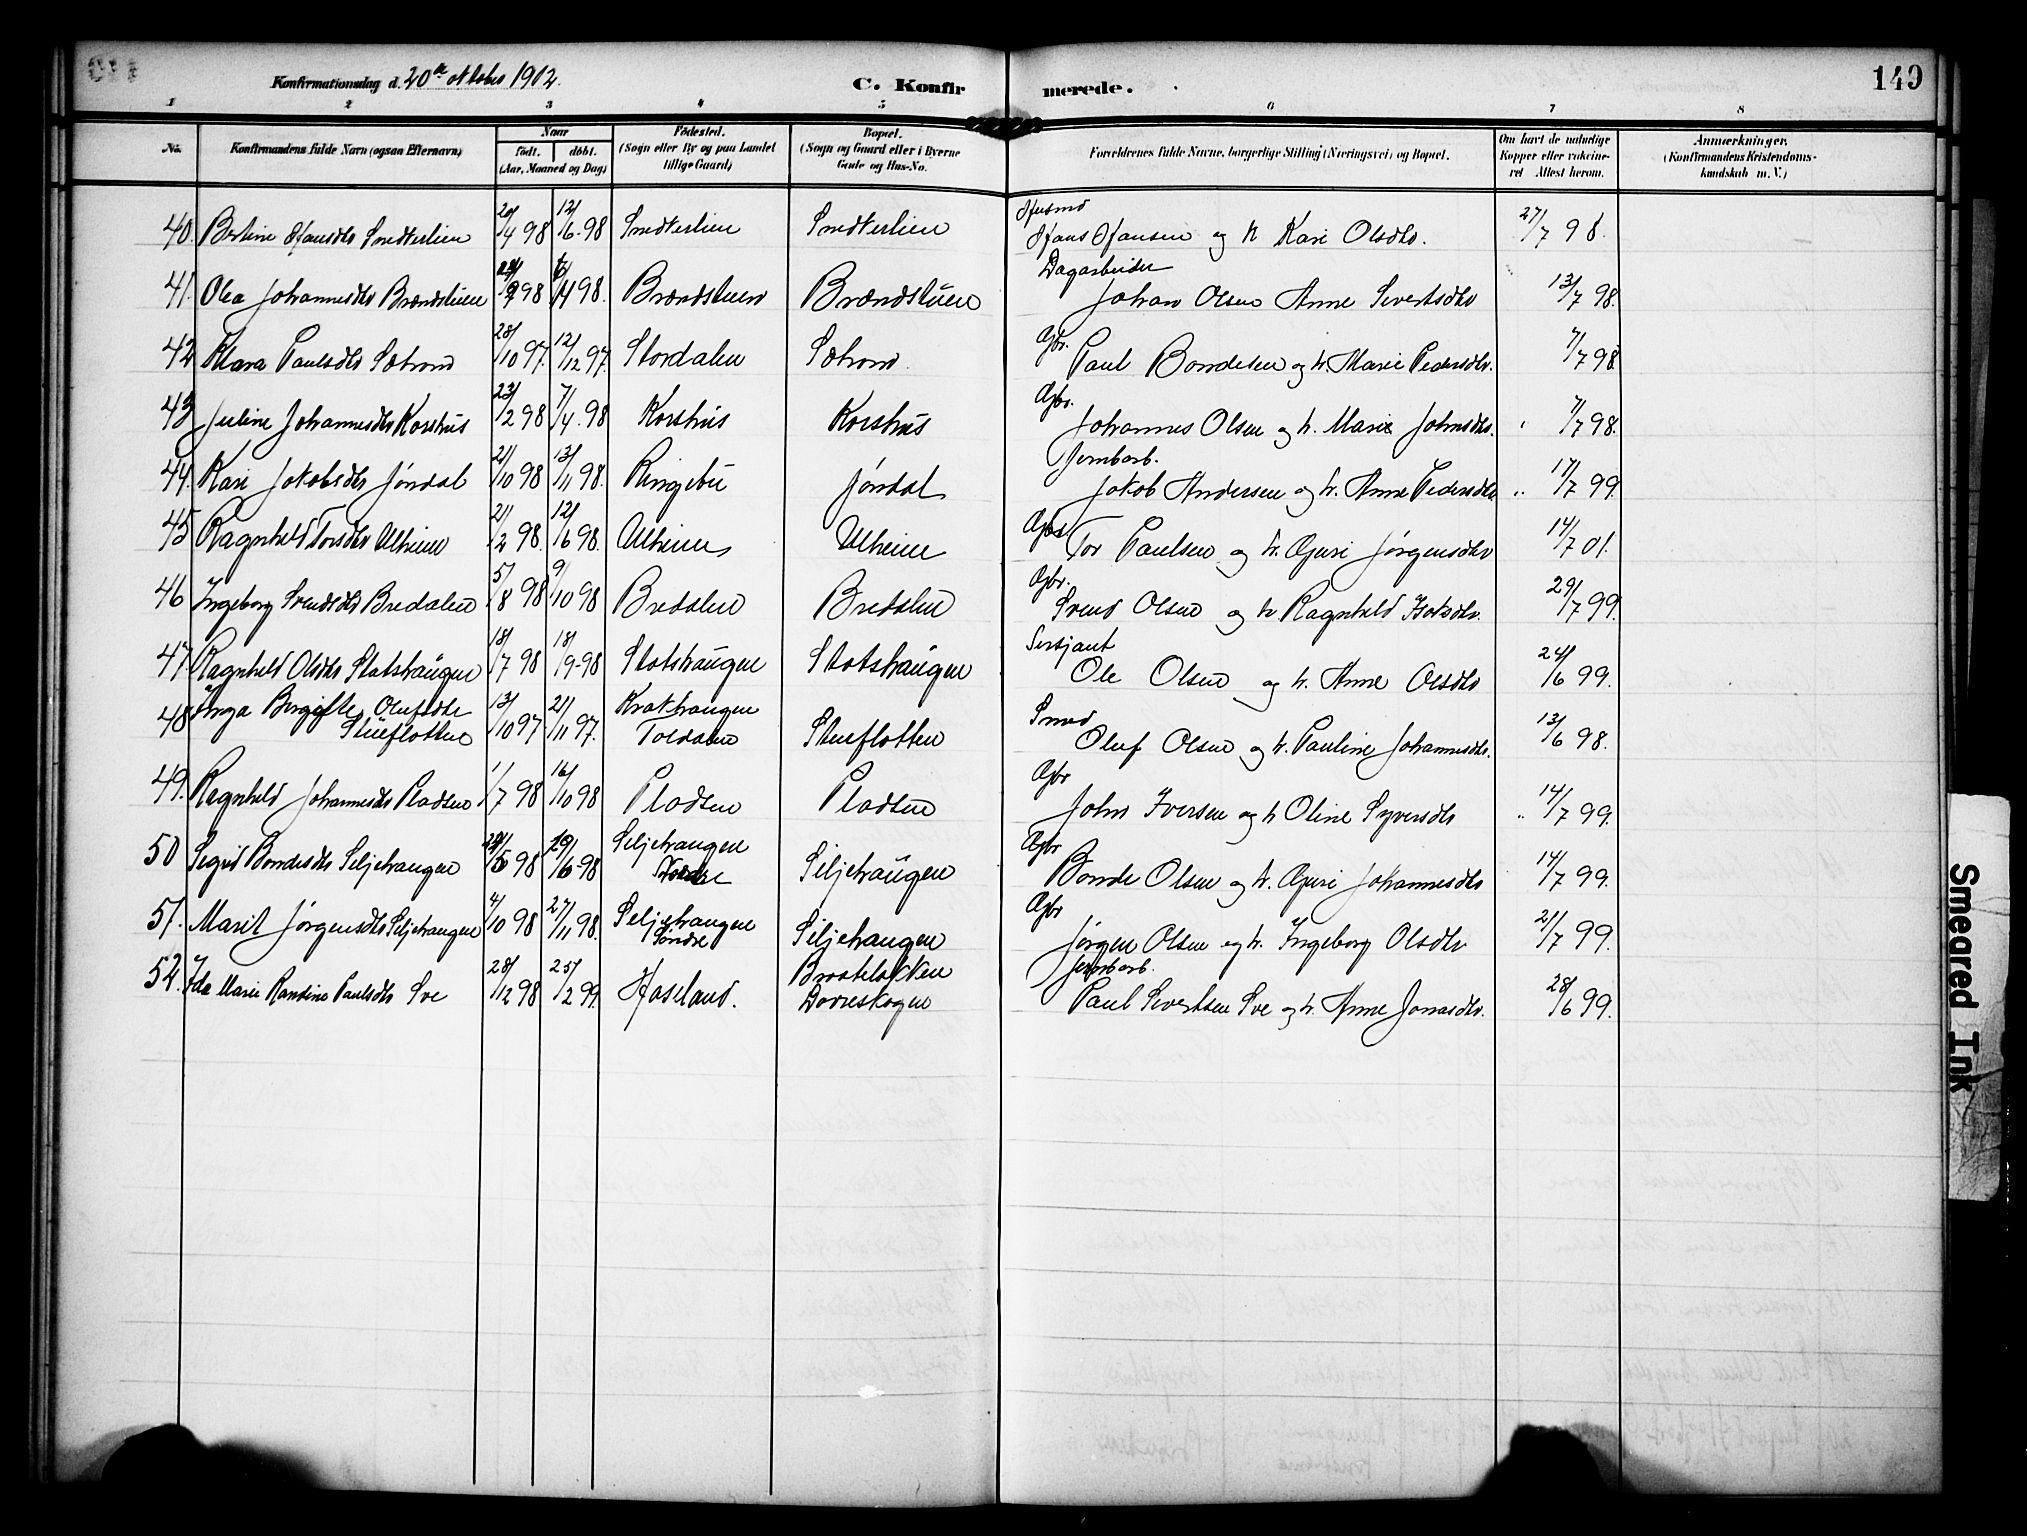 Konfirmationsdag d. 20de oktober 1912.
C. Konfirmerede.
149
1 2 3 4 5 6 7 8
No. Konfirmandens fulde Navn (ogsaa Efternavn)
Naar født. døbt. (Aar, Maaned og Dag)
Fødested. (Sogn eller By og paa Landet tillige Gaard)
Bopæl. (Sogn og Gaard eller i Byerne Gade og Hus-No.
Forældrenes fulde Navne, borgerlige Stilling (Næringsvei) og Bopæl.
Om havt de naturlige Kopper eller vakcineret Attest herom.
Anmærkninger. (Konfirmandens Kristendomskundskab m. V.)
40. Bertine Hansdtr Smedterlien 20/4 98 12/6-98 Smedterlien Smedterlien Husmd Hans Hansen og h Kari Olsdtr. 27/7 98.
41. Olea Johannesdtr Brændstuen 98 98. Brændstuen Brændstuen Dagarbeider Johan Olsen Anne Sivertsdtr 13/7 98.
42 Klara Paulsdtr Sætrom 28/10 97. 12/12 97. Stordalen Sætrom. Gbr. Paul Bondesen og h. Marie Pedersdtr. 7/7 98
43 Juline Johannesdtr Korshus 23/2 98 7/4. 98 Korshus Korshus Gbr. Johannes Olsen og h. Marie Johnsdtr. 7/7 98.
44. Kari Jakobsdtr Jøndal 21/10 98 13/11 98. Ringebu Jøndal Jernbarb. Jakob Andersen og h. Anne Pedersdtr „ 17/7 99.
45 Ragnhild Torsdtr Ulheim 2/2 98. 12/6 98. Ulheim Ulheim Gbr Tor Paulsen og h. Guri Jørgensdtr 14/7 01.
46 Ingeborg Svendsdtr Bredalen 5/8 98 9/10 98 Bredalen Bredalen Gbr. Svend Olsen og h Ragnhild 29/7 99.
47. Ragnhild Olsdtr Slotshaugen 18/7 98 18/9-98 Slotshaugen Slotshaugen Sersjant Ole Olsen og h. Anne Olsdtr 24/6 99.
48. Inga Birgitte Olufsdtr Stueflotten 13/10 97 21/11 97. Krakhaugen Stueflotten Smed Oluf Olsen og h. Pauline Johannesdtr. 13/6 98.
49. Ragnhild Johannesdtr Pladsen 1/7 98 16/10 98 Pladsen Pladsen Gbr John Iversen og h Oline Syversdtr „ 14/7 99.
50 Sigrid Bondesdtr Siljehaugen 98 98 Siljehaugen Siljehaugen Gbr Bonde Olsen og h. Guri Johannesdtr 14/7 99.
51. Marit Jørgensdtr Siljehaugen 4/10 98 27/11 98. Siljehaugen Søndre Siljehaugen Gbr Jørgen Olsen og h. Ingeborg Olsdtr 21/7 99.
52. Ida Marie Randine Paulsdtr Sve 28/12 98 25/2 99. Haseland. Braateløkken Dovreskogen Jernbarb. Paul Sivertsen Sve og h. Anne Jonasdtr. 28/6 99.
Smeared Ink